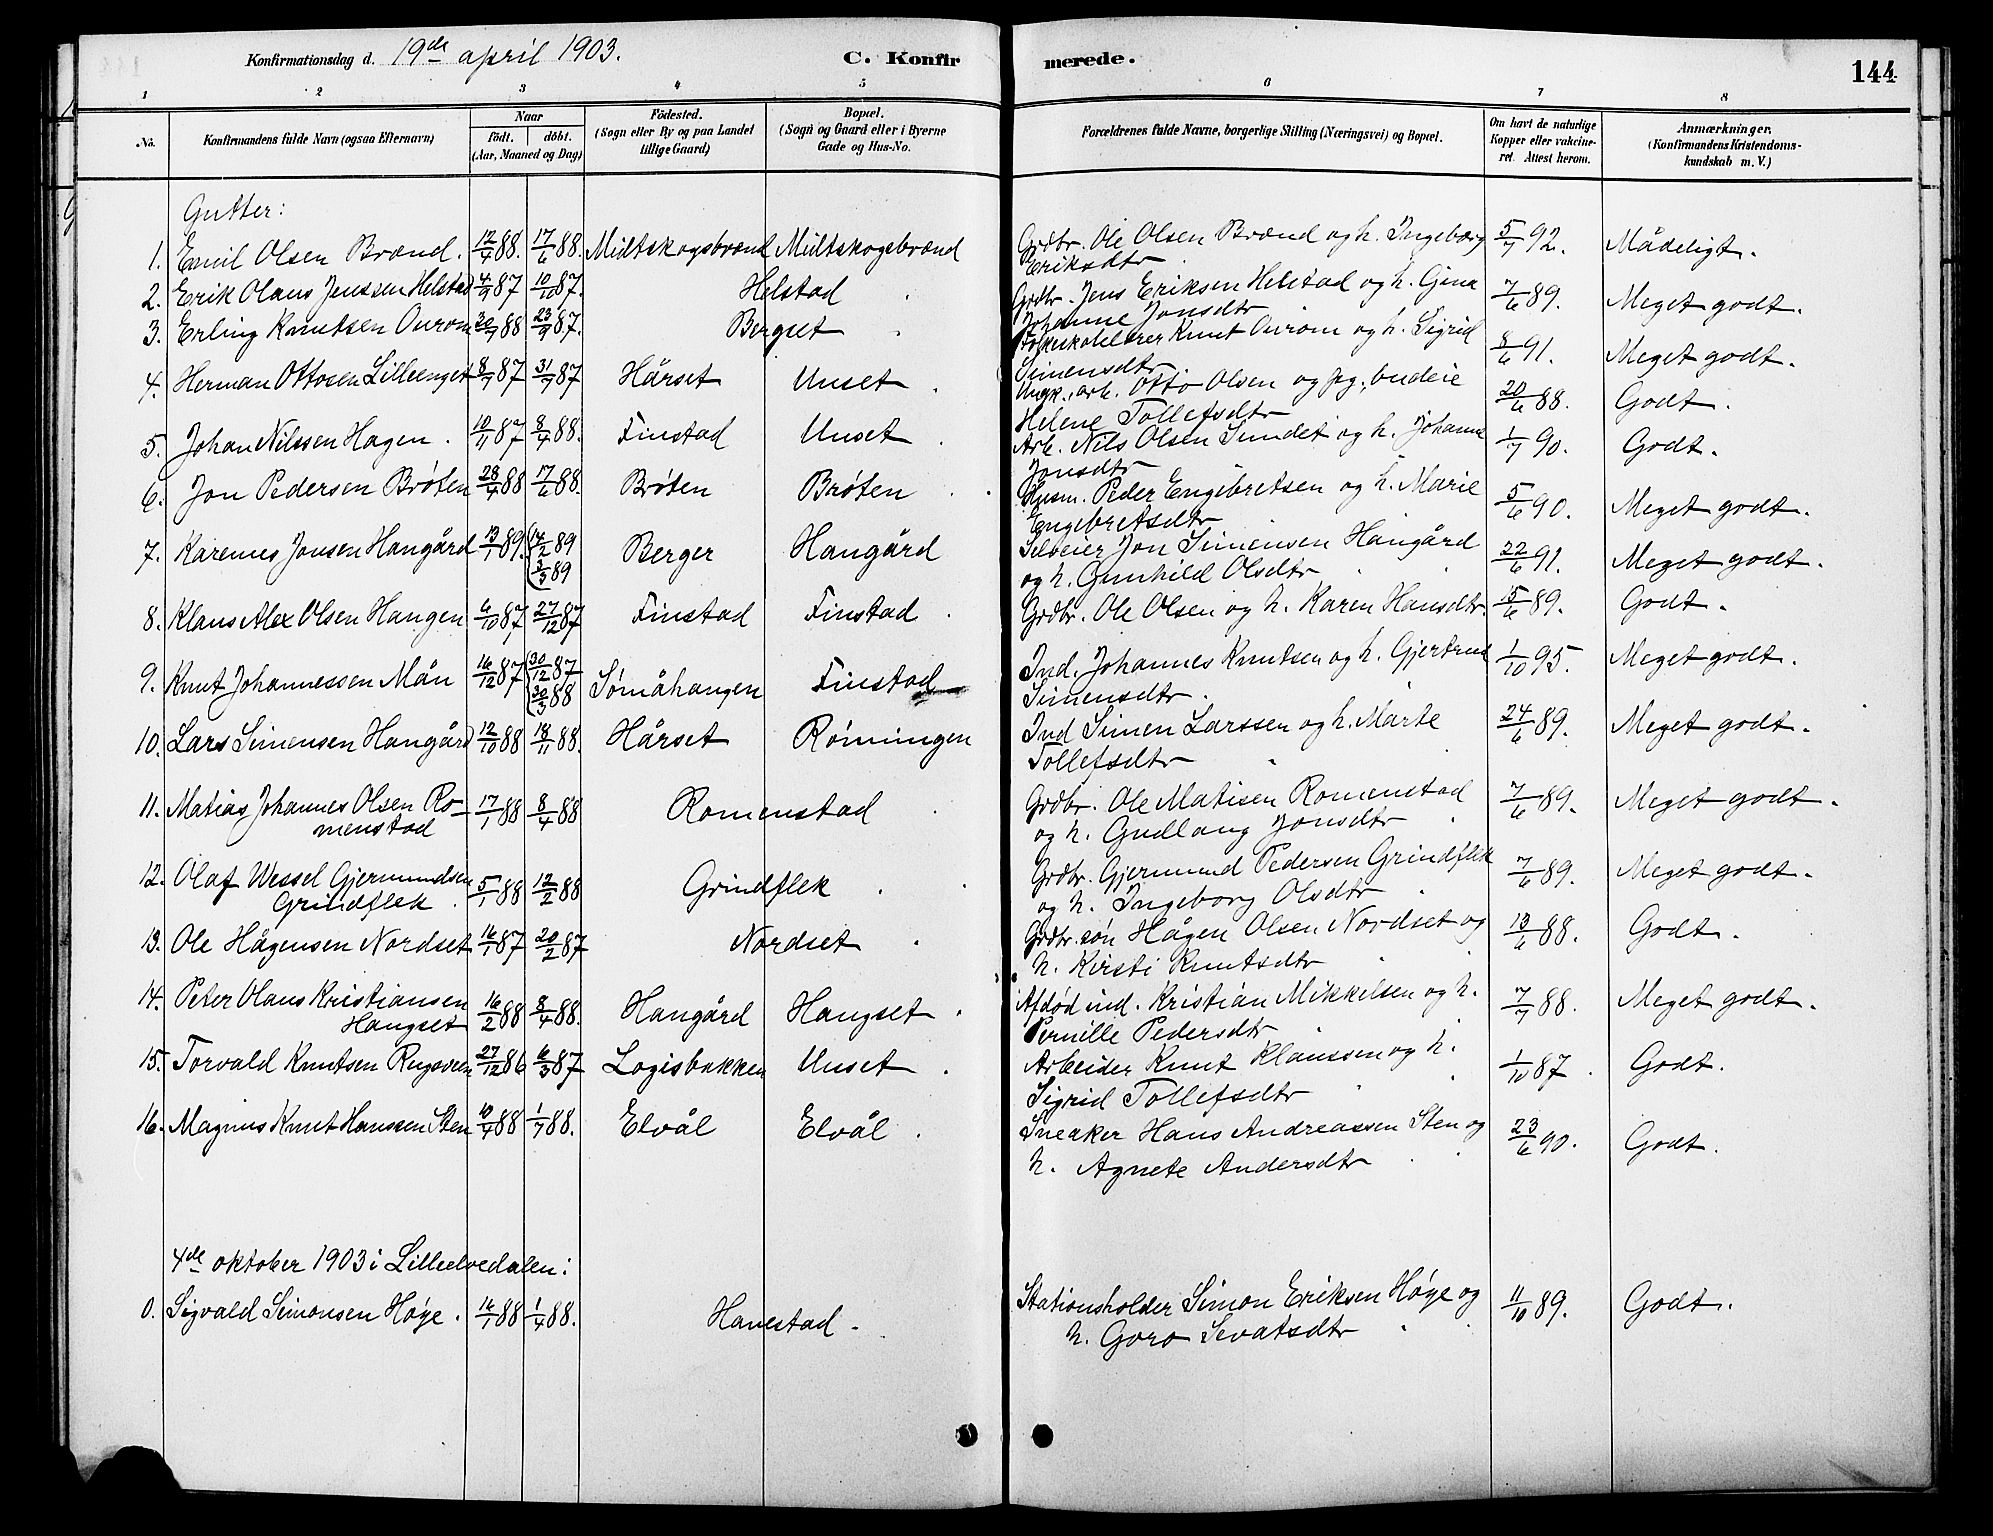 Konfirmationsdag d. 19de april 1903. C. Konfirmerede. 144
1 2 3 4 5 6 7 8
No. Konfirmandens fulde Navn (ogsaa Efternavn) Naar födt. döbt. (Aar, Maaned og Dag) Födested. (Sogn eller By og paa Landet tillige Gaard) Bopæl. (Sogn og Gaard eller i Byerne Gade og Hus-No. Forældrenes fulde Navne, borgerlige Stilling (Næringsvei) og Bopæl. Om havt de naturlige Kopper eller vakcineret. Attest herom. Anmærkninger. (Konfirmandens Kristendomskundskab m. V.)
Gutter:
1. Emil Olsen Brænd. 12/4 88. 17/6 88. Midtskogsbrænd Midtskogsbrænd Grdbr. Ole Olsen Brænd og h. Ingeborg Eriksdtr 5/7 92. Mådeligt.
2. Erik Olaus Jenssen Helstad 4/9 87 10/10 87. Helstad Grdbr. Jens Eriksen Helstad og h. Gjena Johanne Jonsdtr 7/6 89. Meget godt.
3. Erling Knutsen Ourom 30/7 88 23/9 87. Bergset Folkeskolelærer Knut Ourom og h. Sigrid Simensdtr 8/6 91. Meget godt.
4. Herman Ottosen Lilleenget 8/7 87 31/7 87 Hårset Unset Ungk., arb. Otto Olsen og Pg., budeie Helene Tollefsdtr 20/6 88. Godt.
5. Johan Nilssen Hagen. 10/11 87 8/4 88. Finstad Unset Arb. Nils Olsen Sundet og h. Johanne Jonsdtr 1/7 90. Godt.
6. Jon Pedersen Bröten 28/4 88 17/6 88. Bröten Bröten Husm. Peder Engebretsen og h. Marie Engebretsdtr 5/6 90. Meget godt.
7. Karenus Jonsen Hangård 13/1 89. 14/2 89 3/3 89 Berger Hangård Selveier Jon Simensen Hangård og h. Gunhild Olsdtr 22/6 91. Meget godt.
8. Klaus Alex Olsen Hangen 6/10 87 27/12 87 Finstad Finstad Grdbr. Ole Olsen og h. Karen Hansdtr. 15/6 89. Godt.
9. Knut Johannessen Mån 16/12 87 30/12 87 30/3 88 Sömåhaugen Finstad Ind. Johannes Knutsen og h. Gjertrud Simensdtr. 1/10 95. Meget godt.
10. Lars Simensen Hangård 12/10 88 18/11 88. Hårset Römingen Ind Simen Larssen og h. Marte Tollefsdtr 24/6 89. Meget godt.
11. Matias Johannes Olsen Romenstad 17/1 88 8/4 88 Romenstad Grdbr. Ole Matisen Romenstad og h. Gudlaug Jonsdtr 7/6 89. Meget godt.
12. Olaf Wessel Gjermundsen Grindflek 5/1 88 12/2 88 Grindflek Grdbr. Gjermund Pedersen Grindflek og h. Ingeborg Olsdtr 7/6 89. Meget godt.
13. Ole Hågensen Nordset 16/1 87 20/2 87 Nordset Grdbr.sön Hågen Olsen Nordset og h. Kirsti Knutsdtr 13/6 88. Godt.
14. Peter Olaus Kristiansen Hangset 16/2 88 8/4 88. Hangård Hangset Afdød ind. Kristian Mikkelsen og h. Pernille Pedersdtr 7/7 88. Meget godt.
15. Torvald Knutsen Rugsveen 27/12 86 6/3 87 Logisbakken Unset Arbeider Knut Klaussen og h. Sigrid Tollefsdtr 1/10 87. Godt.
16. Magnus Knut Hanssen Sten 10/4 88 1/7 88. Elvål Elvål Snedker Hans Andreassen Sten og h. Agnete Andersdtr 23/6 90. Godt.
4de oktober 1903 i Lilleelvedalen:
0. Sigvald Simonsen Høye. 16/1 88 1/4 88. Hanestad. Stationsholder Simon Eriksen Høye og h. Goro Sevatsdtr 11/10 89. Godt.